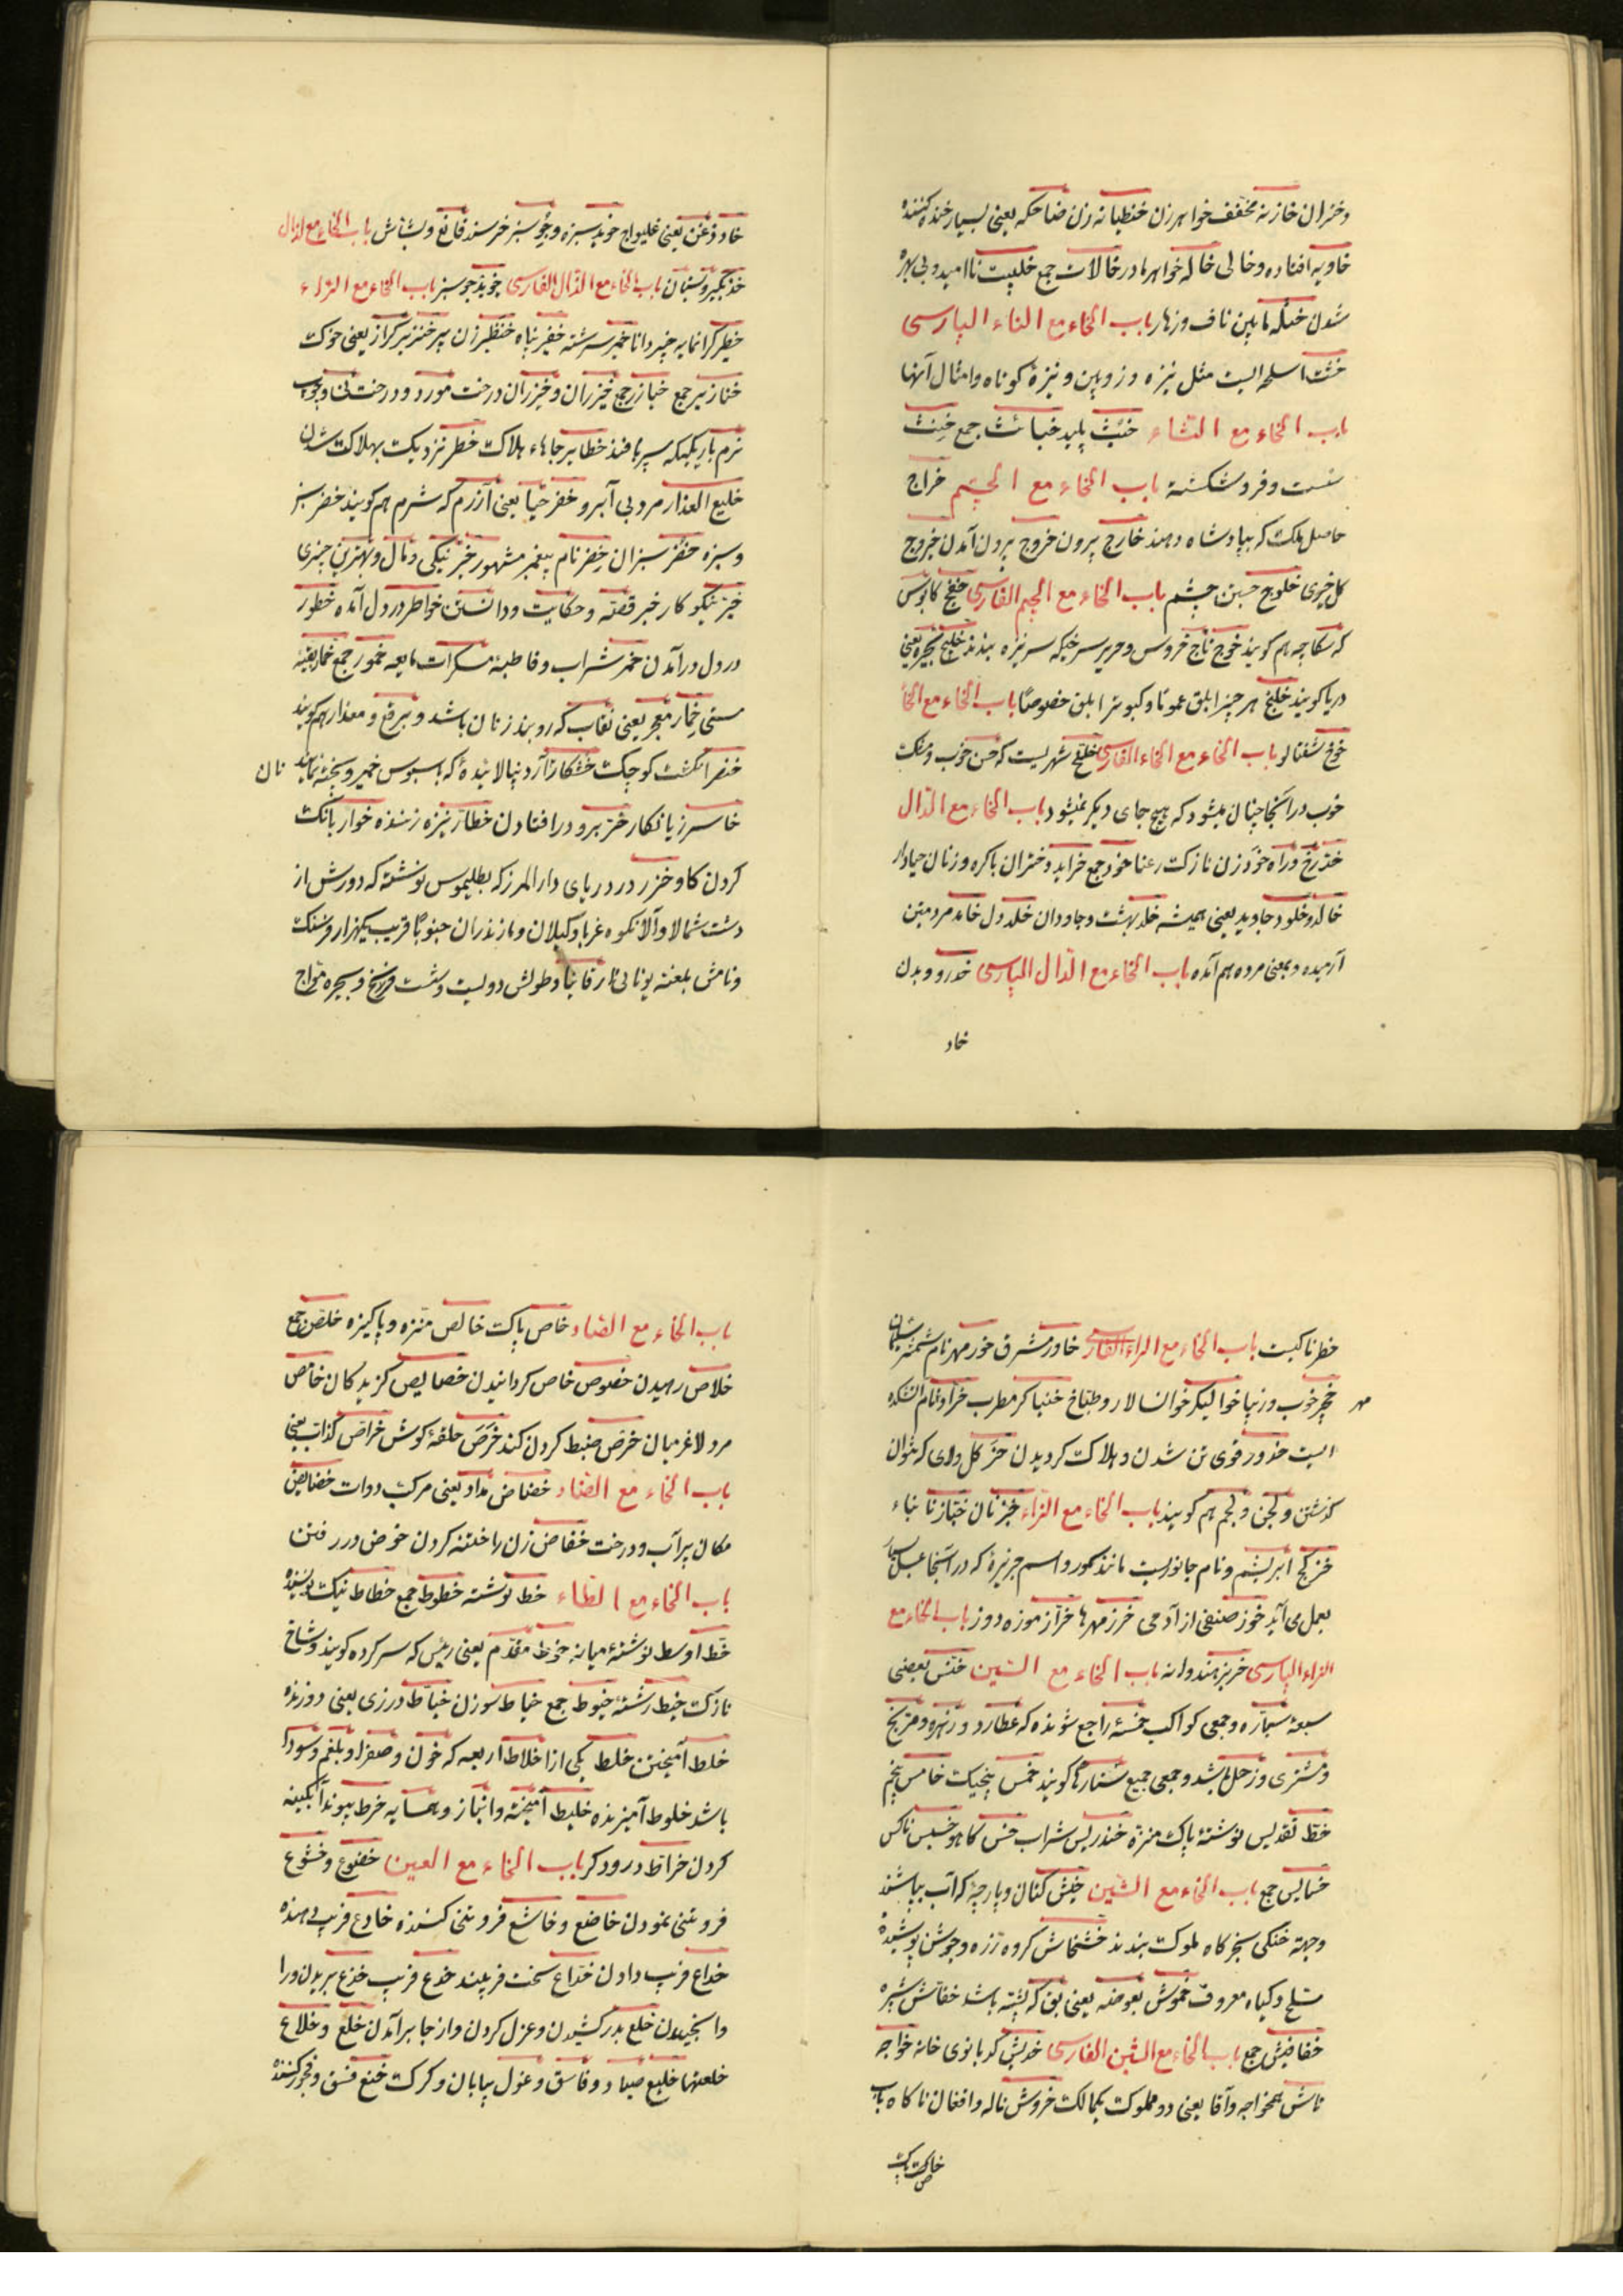 دختران خازنه مخفف خواهرزن خنطیانه زن ضاحکه یعنی بسیار خنده کننده
خاویه افتاده و خالی خاله خواهر مادر خالات جمع خیبت ناامید و بی بهره
شدن خثله مابین ناف و زهار باب الخاء مع التاء الپارسی
خشت اسلحه‌ایست مثل نیزه و زوبین و نیزۀ کوتاه و امثال آنها
باب الخاء مع الثاء خبیث پلید خبائث جمع خنث
سست و فروشکسته باب الخاء مع الجیم خراج
حاصل ملک که بپادشاه دهند خارج بیرون خروج بیرون آمدن خیروج
کل خیری خلوج جستن چشم باب الخاء مع الجیم الفارسی خفج کابوس
که سکاچه هم کویند خوج تاج خروس و حریر سرخیکه سر نیزه بندند خلیج بحیره یعنی
دریا کویند خلنج هر چیز ابلق عموما و کبوتر ابلق خصوصا باب الخاء مع الخاء
خوخ شفتالو باب الخاء مع الخاء الفارسی خلخ شهریست که حسن خوب و مشک
خوب در آنجا چنان میشود که هیچ جای دیکر نمیشود باب الخاء مع الدال
خد رخ و راه خود زن نازک رعنا خود جمع خراید دختران باکره و زنان حیادار
خالد و خلود جاوید یعنی همیشه خلد بهشت و جاودان خلد دل خامد مردمتین
آرمیده و بمعنی مرده هم آمده باب الخاء مع الدال الپارسی خدرو و بدن
خاد
خاد زغن یعنی غلیواج خوید سبزه و جو سبز خرسند قانع و بشاش باب الخاء مع الذال
خذ بکیر و بستان باب الخاء مع الذال الفارسی خویذ جو سبز باب الخاء مع الراء
خطیر کرانمایه خبیر دانا خمیر سرشته خفیر پناه خنظیر زن پیر خنزیر کراز یعنی خوک
خنازیر جمع خیازر جمع خیزران و خیزران درخت مورد و درخت نی و چوب
نرم باریکیکه سپر بافند خطایر جاهاء هلاکت خطر نزدیک بهلاکت شدن
خلیع العذار مرد بی آبرو خفر حیا یعنی آزرم که شرم هم کویند خضر سبز
و سبزه خضر سبزان خضر نام پیغمبر مشهور خیر نیکی و مال و بهترین چیزی
خیر نیکو کار خبر قصه و حکایت و دانستن خواطر در دل آمده خطور
در دل درآمدن خمر شراب و قاطبۀ مسکرات مایعه خمور جمع خمار بقیۀ
مستی خمار معجر یعنی نقاب که روبند زنان باشد و برقع و معذار هم کویند
خنصر انکشت کوچک خشکار آرد نپالائیده که با سبوس خمیر و پخته نمایند نان
خاسر زیانکار خر برو درافتادن خطار نیزه زننده خوار بانک
کردن کاو خزر در دریای دارالمرز که بطلیموس نوشته که دورش از
دشت شمالا و آلانکوه غربا و کیلان و مازندران جنوبا قریب بیکهزار فرسنک
و نامش بلغته یونانی ارقانیا و طولش دویست و شصت فرسخ و بحیره مواج
خطرناکیست باب الخاء مع الراء الفارسی خاور مشرق خور مهر نام شمشیر سلیمان
خجیر خوب و زیبا خوالیکر خوانسالار و طباخ خنیاکر مطرب خراد نام آتشکده
مهر
ایست خدور قوی تن شدن و هلاک کردیدن خر کل و لای که نتوان
کذشتن و لجن و لجم هم کویند باب الخاء مع الزاء خبز نان خباز نانباء
خز کج ابریشم و نام جانوریست مانند سمور و اسم جزیرۀ که در آنجا عسل بسیار
بعمل می آید خوز صنفی از آدمی خرز مهرها خراز موزه دوز باب الخاء مع
الزاء الپارسی خربز هندوانه باب الخاء مع السین خنس بعضی
سبعۀ سیاره و جمعی کواکب خمسۀ راجع شونده که عطارد و زهره و مریخ
و مشتری و زحل باشد و جمعی جمیع ستارها کویند خمس پنجیک خامس پنجم
خط تقدیس نوشتۀ پاک منزه خندریس شراب خس کاهو خسیس ناکس
خسایس جمع باب الخاء مع الشین خیش کتان و پارچۀ که آب بپاشند
و جهة خنکی بخرکاه ملوک بندند خشخاش کروه زره و جوشن پوشیدۀ
مسلح و کیاه معروف خموش بعوضه یعنی بق که پشه باشد خفاش شب پره
خفافیش جمع باب الخاء مع الشین الفارسی خدیش کدبانوی خانه خواجه
تاش همخواجه و آقا یعنی دو مملوک یکمالک خروش ناله و افغان ناکاه باب
خاص پاک
باب الخاء مع الصاد خاص پاک خالص منزه و پاکیزه خلص جمع
خلاص رهیدن خصوص خاص کردانیدن خصایص کزیدکان خامص
مرد لاغر میان خرص ضبط کردن کند خرص حلقۀ کوش خراص کذاب یعنی
باب الخاء مع الضاد خضاض مداد یعنی مرکب دوات خضایض
مکان پر آب و درخت خفاض زن را ختنه کردن خوض در رفتن
باب الخاء مع الطاء خط نوشته خطوط جمع خطاط نیک نویسنده
خط اوسط نوشتۀ میانه خوط مقدم یعنی رئیس که سرکرده کویند و شاخ
نازک خیط رشته خیوط جمع خیاط سوزن خیاط درزی یعنی دوزنده
خلط آمیختن خلط یکی از اخلاط اربعه که خون و صفرا و بلغم و سودا
باشد خلوط آمیزنده خلیط آمیخته و انباز و همسایه خرط پیوند آبکینه
کردن خراط درودکر باب الخاء مع العین خضوع و خشوع
فروتنی نمودن خاضع و خاشع فروتنی کننده خادع فریب دهنده
خداع فریب دادن خداع سخت فریبنده خدع فریب خذع بریدن ورا
وانجیدن خلع بدر کشیدن و عزل کردن و از جا برآمدن خلع و خلاع
خلعتها خلیع صیاد و فاسق و غول بیابان و کرک خنع فسق و فجور کننده